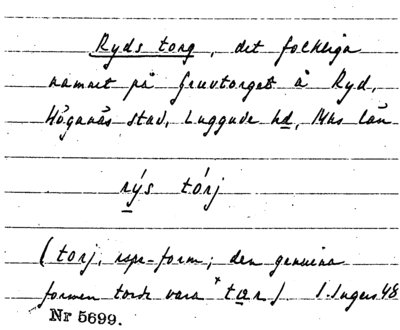 Ryds torg, det folkliga
namnet på Gruvtorget å Ryd,
Höganäs stad, Luggude hd, Mhs län
rýs tórj
(torj, rspr-form; den genuina
formen torde vara *tær). I. Ingers 48
Nr 5699.